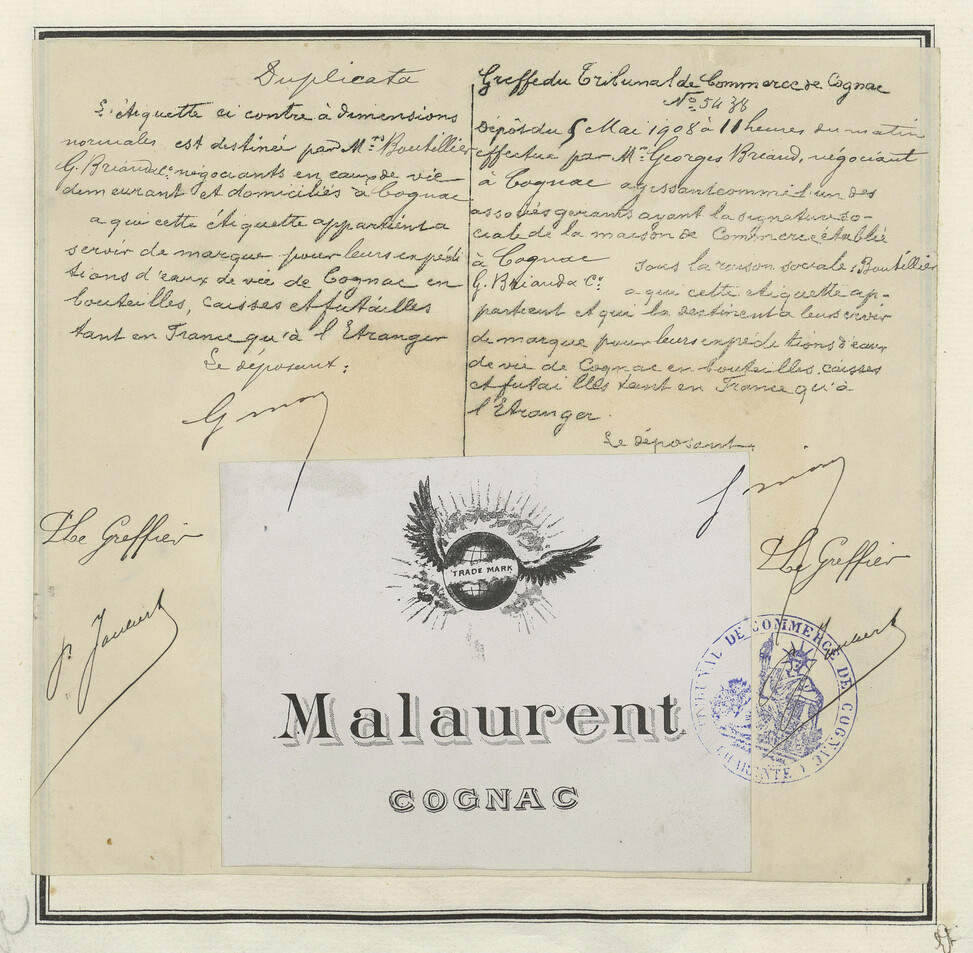 Duplicata
L'étiquette ci contre à dimensions
normales est destinée par Mrs Boutillier
G. Briand &Cie négociants en eaux de vie
demeurant et domiciliés à Cognac
a qui cette étiquette appartient a
servir de marque pour leurs expédi
tions d'eaux de vie de Cognac en
bouteilles, caisses et futailles
tant en France qu'à l'Etranger
Le déposant:
P Le Greffier
Greffe du Tribunal de Commerce de Cognac
No 5438
Dépôt du 5 Mai 1908 à 11 heures du matin
effectué par Mr Georges Briand, négociant
à Cognac agissant comme l'un des
associés gérants ayant la signature so-
ciale de la maison de Commerce établie
à Cognac sous la raison sociale: Boutillier
G. Briand & Cie a qui cette étiquette ap-
partient et qui la destinent a leur servir
de marque pour leurs expéditions d'eaux
de vie de Cognac en bouteilles, caisses
et futailles tant en France qu'à
l'Etranger.
Le déposant.
P Le Greffier
TRADE MARK
Malaurent
COGNAC
TRIBUNAL DE COMMERCE DE COGNAC
CHARENTE